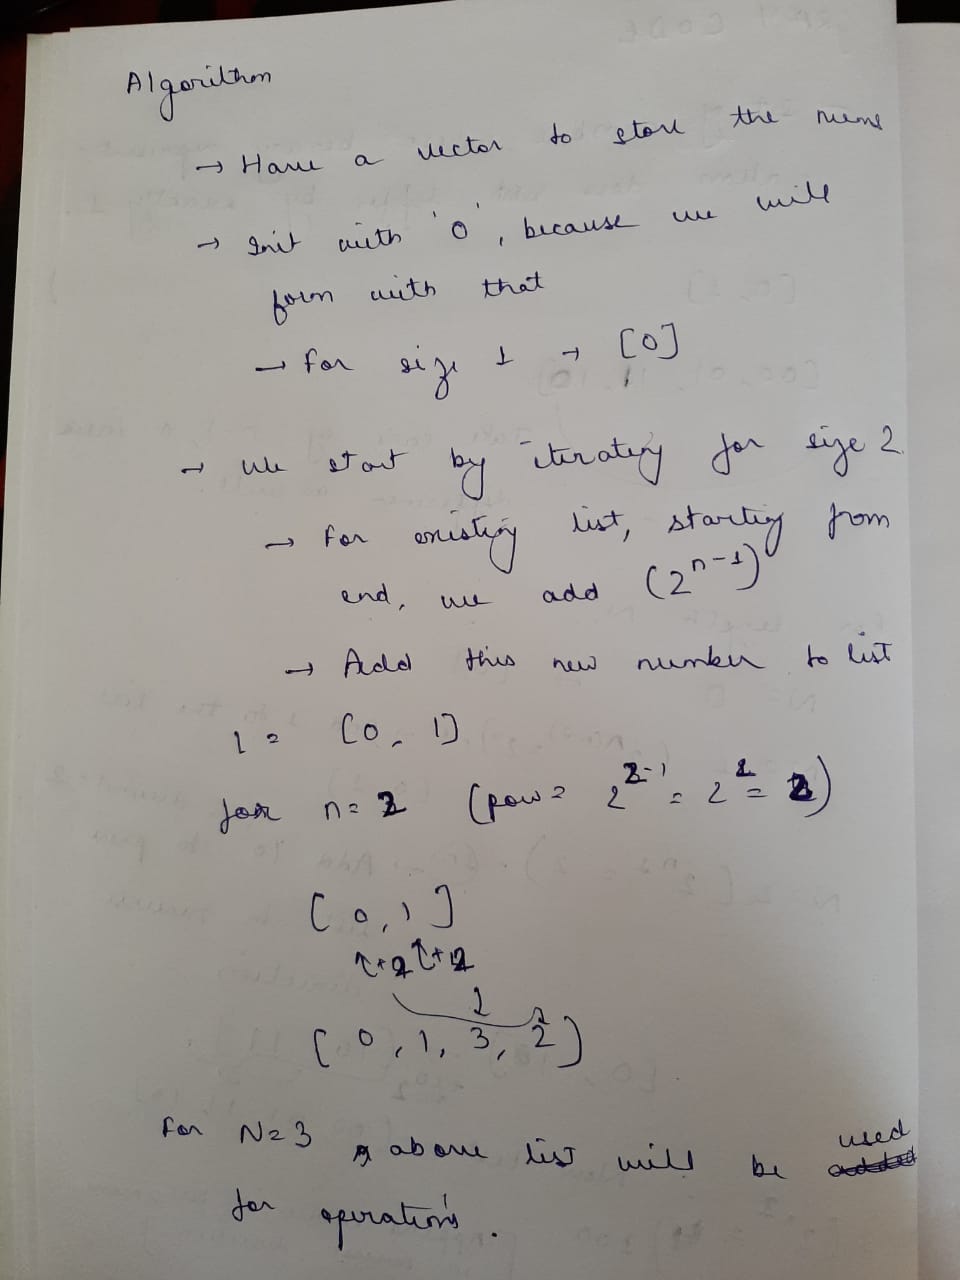 Algorithm
→ Have a vector to store the nums
→ Init with '0', because we will
form with that
→ for size 1 → [0]
→ We start by iterating for size 2.
→ For existing list, starting from
end, we add (2^n-1)
→ Add this new number to list
l = [0, 1]
for n=2 (pow = 2^2-1 = 2^1 = 2)
[0, 1]
↑+2 ↑+2
[0, 1, 3, 2]
For N=3 above list will be used
for operations.